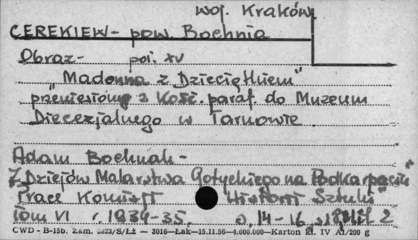 woj. Kraków
CEREKIEW - pow. Bochnia
Obraz - poł. XV
"Madonna z Dzieciątkiem"
przeniesiony z Kość. paraf. do Muzeum
Diecezjalnego w Tarnowie.
Adam Bochnak -
"Z Dziejów Malarstwa Gotyckiego na Podkarpaciu"
Prace Komisji Historii Sztuki
tom VI r. 1934-35, s. 14-16 2
CWD - B-15b. Zam. S/Łż — 3016—Łak—15.11.56—4.000.000—Karton kl. IV A1/200 g